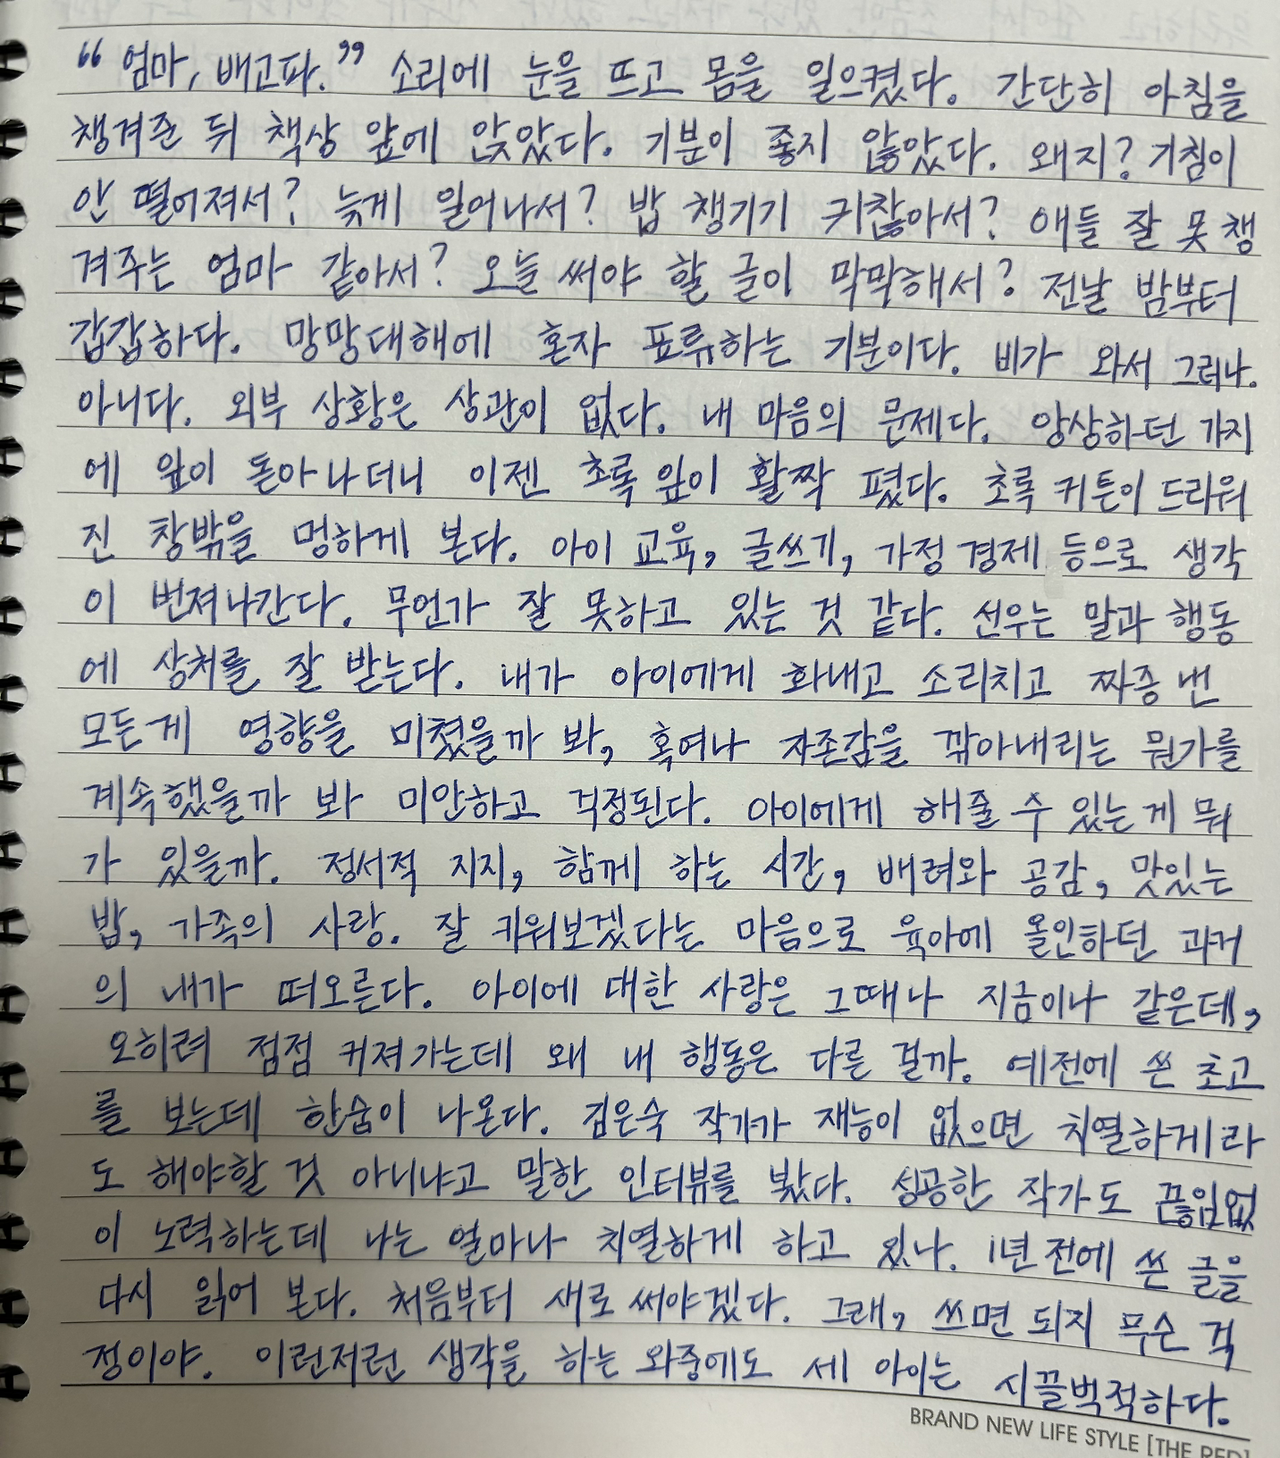 “엄마, 배고파.” 소리에 눈을 뜨고 몸을 일으켰다. 간단히 아침을
챙겨준 뒤 책상 앞에 앉았다. 기분이 좋지 않았다. 왜지? 기침이
안 떨어져서? 늦게 일어나서? 밥 챙기기 귀찮아서? 애들 잘 못 챙
겨주는 엄마 같아서? 오늘 써야 할 글이 막막해서? 전날 밤부터
갑갑하다. 망망대해에 혼자 표류하는 기분이다. 비가 와서 그러나.
아니다. 외부 상황은 상관이 없다. 내 마음의 문제다. 앙상하던 가지
에 잎이 돋아나더니 이젠 초록 잎이 활짝 폈다. 초록 커튼이 드리워
진 창밖을 멍하게 본다. 아이 교육, 글쓰기, 가정 경제 등으로 생각
이 번져나간다. 무언가 잘 못하고 있는 것 같다. 선우는 말과 행동
에 상처를 잘 받는다. 내가 아이에게 화내고 소리치고 짜증 낸
모든게 영향을 미쳤을까 봐, 혹여나 자존감을 깎아내리는 뭔가를
계속했을까 봐 미안하고 걱정된다. 아이에게 해줄 수 있는게 뭐
가 있을까. 정서적 지지, 함께 하는 시간, 배려와 공감, 맛있는
밥, 가족의 사랑. 잘 키워보겠다는 마음으로 육아에 올인하던 과거
의 내가 떠오른다. 아이에 대한 사랑은 그때나 지금이나 같은데,
오히려 점점 커져가는데 왜 내 행동은 다른 걸까. 예전에 쓴 초고
를 보는데 한숨이 나온다. 김은숙 작가가 재능이 없으면 치열하게라
도 해야할 것 아니냐고 말한 인터뷰를 봤다. 성공한 작가도 끊임없
이 노력하는데 나는 얼마나 치열하게 하고 있나. 1년 전에 쓴 글을
다시 읽어 본다. 처음부터 새로 써야겠다. 그래, 쓰면 되지 무슨 걱
정이야. 이런저런 생각을 하는 와중에도 세 아이는 시끌벅적하다.
BRAND NEW LIFE STYLE [THE RED]